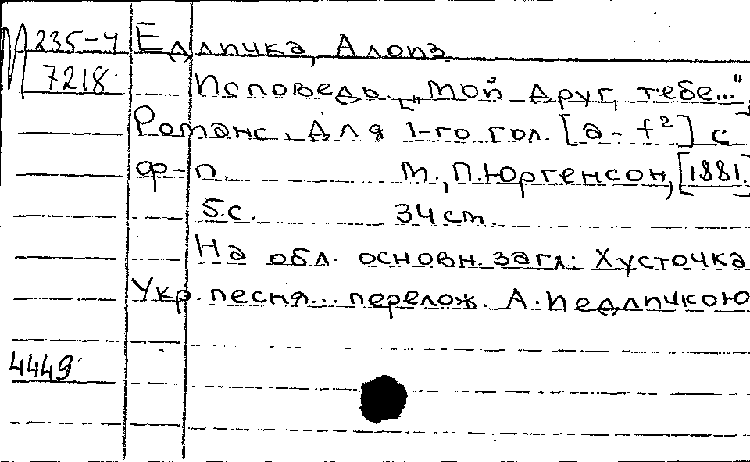 М 235-4 Едличка, Алоиз
7218 Исповедь. [„Мой друг, тебе..."]
Романс. Для 1-го гол. [a-f²] с
ф-п. М., П.Юргенсон, [1881.
5 с. 34 см.
На обл. основн. загл.: Хусточка
Укр. песня... перелож. А. Иедличкою
4449